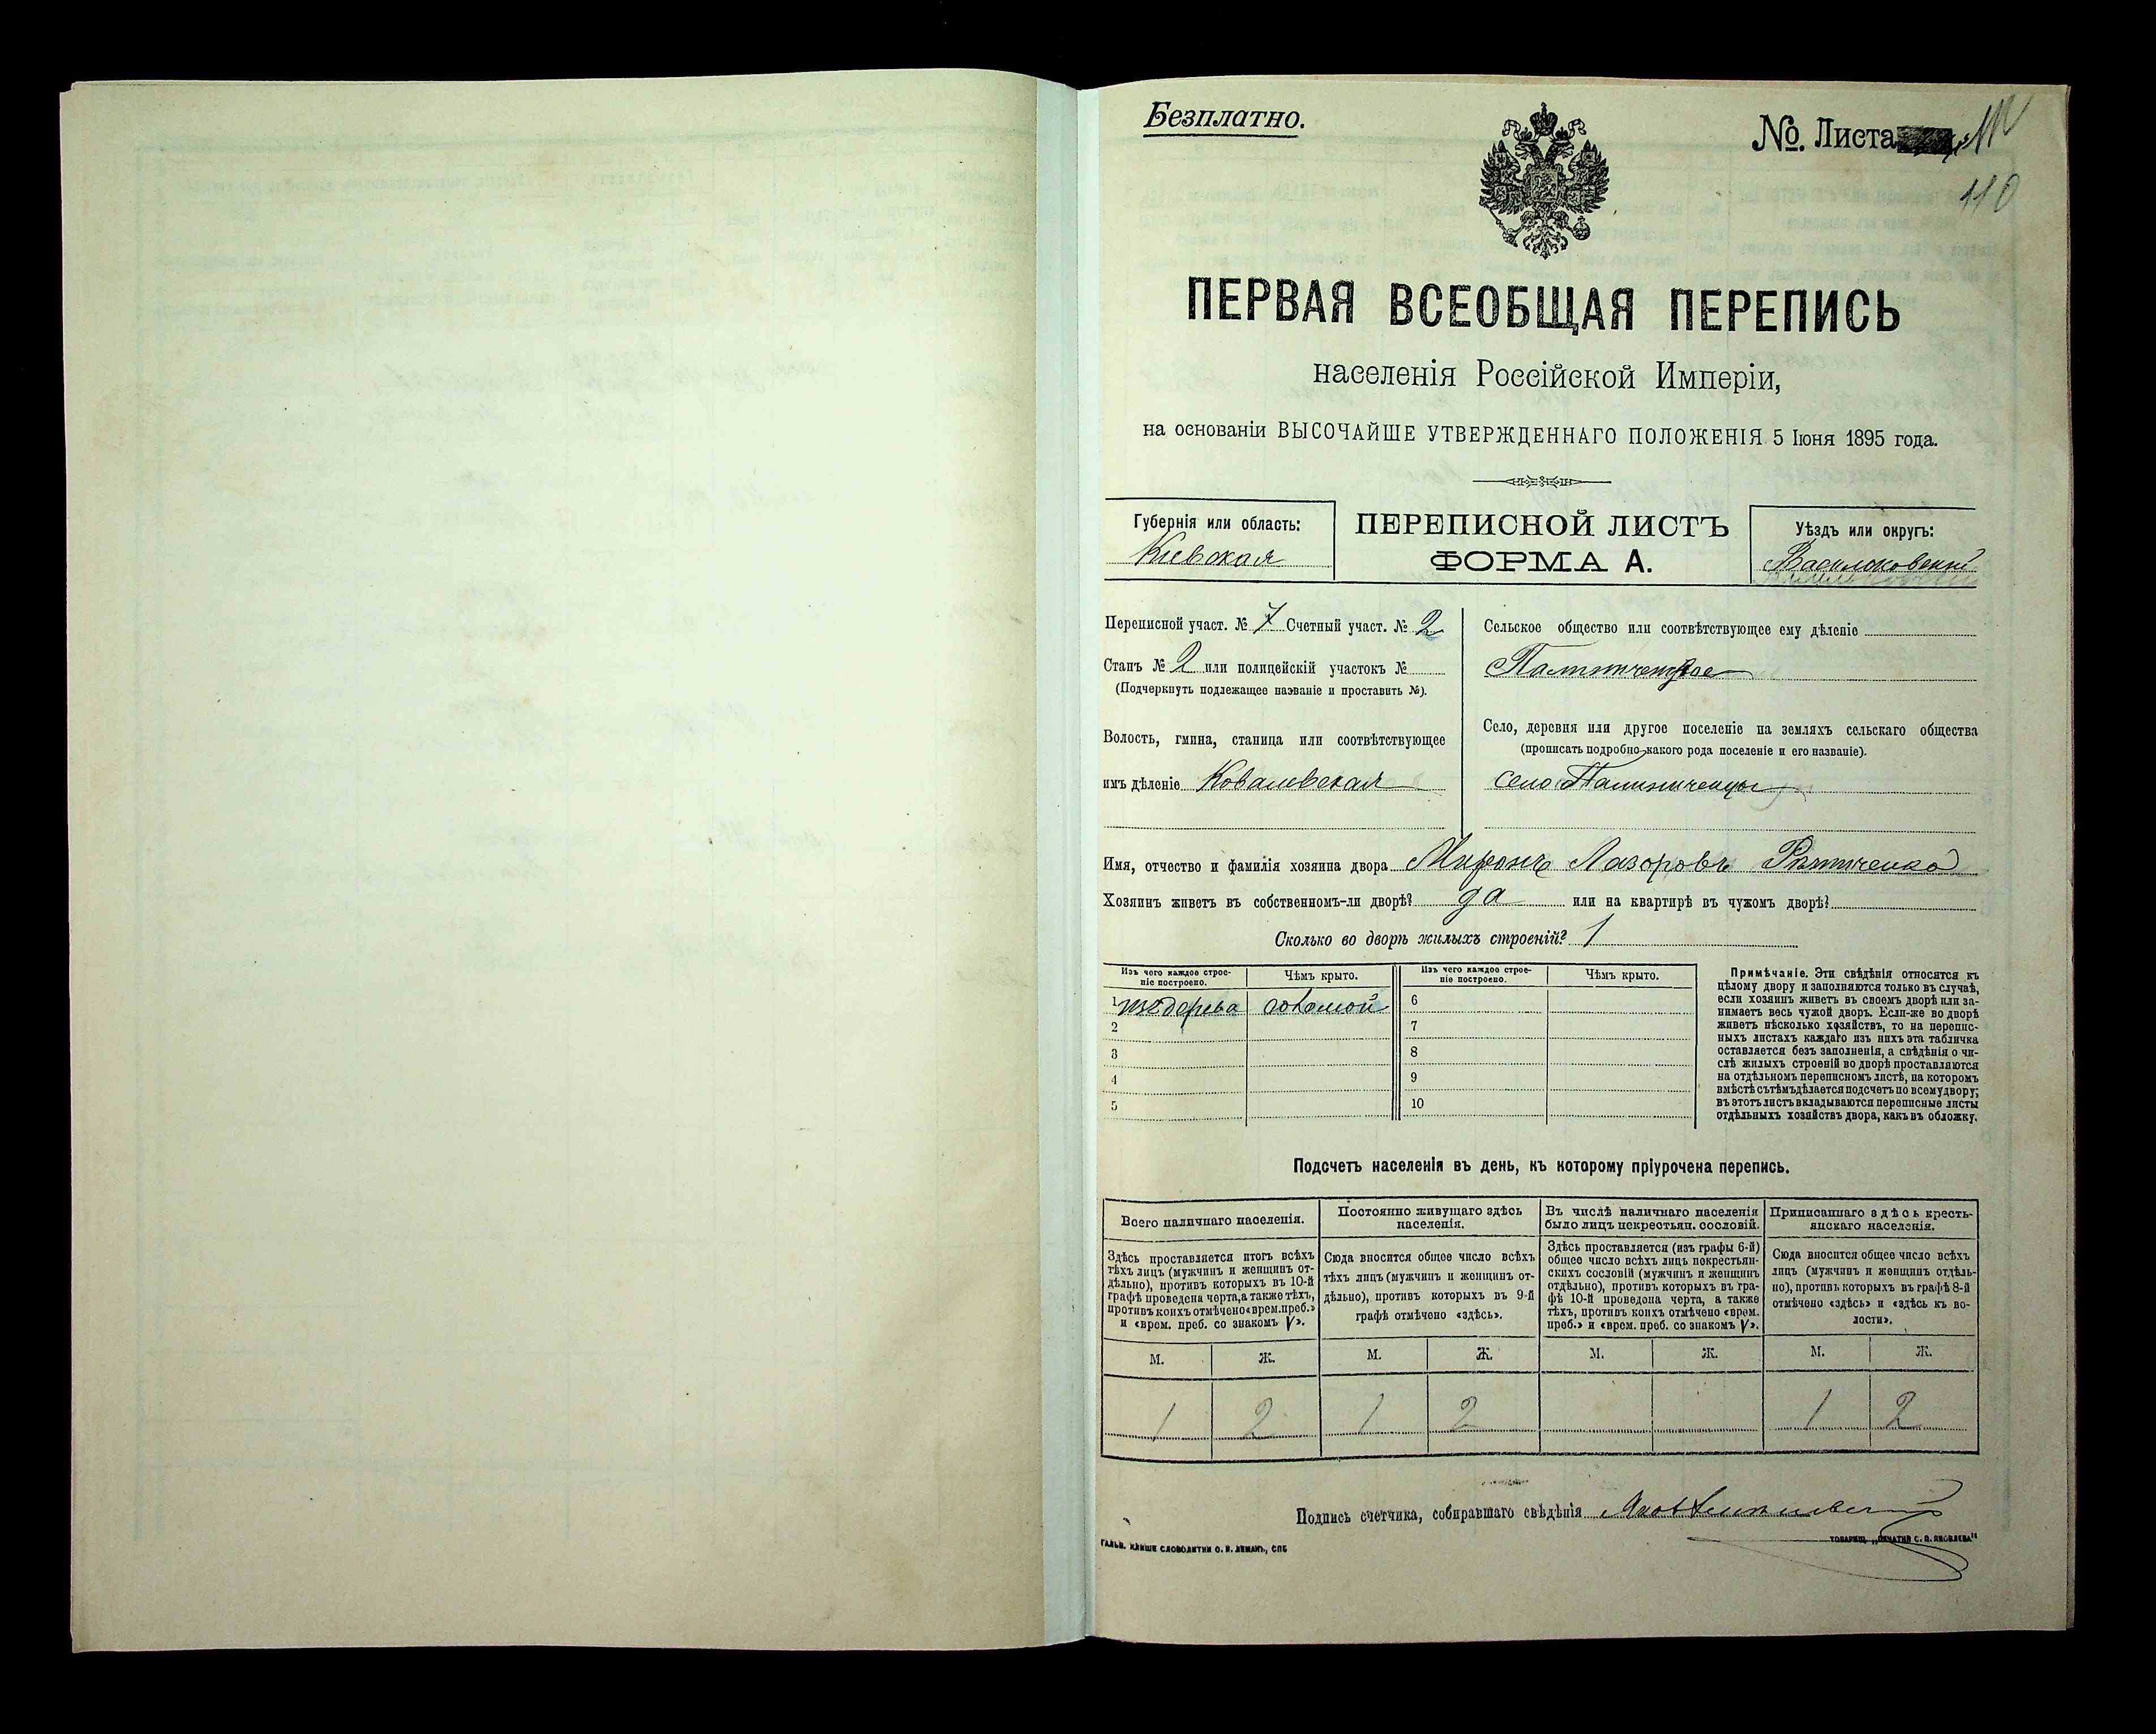 Безплатно.
№. Листа
110
ПЕРВАЯ ВСЕОБЩАЯ ПЕРЕПИСЬ
населенія Россійской Имперіи,
на основаніи ВЫСОЧАЙШЕ УТВЕРЖДЕННАГО ПОЛОЖЕНІЯ 5 Іюня 1895 года.
Губернія или область:
Кіевская
ПЕРЕПИСНОЙ ЛИСТЪ
ФОРМА А.
Уѣздъ или округъ:
Васильковскій
Переписной участ. № 7 Счетный участ. № 2
Станъ № 2 или полицейскій участокъ №
(Подчеркнуть подлежащее названіе и проставить №).
Волость, гмина, станица или соотвѣтствующее
имъ дѣленіе Ковалевская
Сельское общество или соотвѣтствующее ему дѣленіе
Палиниченское
Село, деревня или другое поселеніе на земляхъ сельскаго общества
(прописать подробно какого рода поселеніе и его названіе).
село Палиниченцы
Имя, отчество и фамилія хозяина двора Миронъ Лазоровъ
Хозяинъ живетъ въ собственномъ-ли дворѣ? да или на квартирѣ въ чужомъ дворѣ?
Сколько во дворѣ жилыхъ строеній? 1
Изъ чего каждое строе-
ніе построено.
Чѣмъ крыто.
Изъ чего каждое строе-
ніе построено.
Чѣмъ крыто.
1 изъ дерева соломой 6
2 7
3 8
4 9
5 10
Примѣчаніе. Эти свѣдѣнія относятся къ
цѣлому двору и заполняются только въ случаѣ,
если хозяинъ живетъ въ своемъ дворѣ или за-
нимаетъ весь чужой дворъ. Если-же во дворѣ
живетъ нѣсколько хозяйствъ, то на перепис-
ныхъ листахъ каждаго изъ нихъ эта табличка
оставляется безъ заполненія, а свѣдѣнія о чи-
слѣ жилыхъ строеній во дворѣ проставляются
на отдѣльномъ переписномъ листѣ, на которомъ
вмѣстѣ съ тѣмъ дѣлается подсчетъ по всему двору;
въ этотъ листъ вкладываются переписные листы
отдѣльныхъ хозяйствъ двора, какъ въ обложку.
Подсчетъ населенія въ день, къ которому пріурочена перепись.
Всего наличнаго населенія.
Здѣсь проставляется итогъ всѣхъ
тѣхъ лицъ (мужчинъ и женщинъ от-
дѣльно), противъ которыхъ въ 10-й
графѣ проведена черта, а также тѣхъ,
противъ коихъ отмѣчено «врем. преб.»
и «врем. преб. со знакомъ V».
Постоянно живущаго здѣсь
населенія.
Сюда вносится общее число всѣхъ
тѣхъ лицъ (мужчинъ и женщинъ от-
дѣльно), противъ которыхъ въ 9-й
графѣ отмѣчено «здѣсь».
Въ числѣ наличнаго населенія
было лицъ некрестьян. сословій.
Здѣсь проставляется (изъ графы 6-й)
общее число всѣхъ лицъ некрестьян-
скихъ сословій (мужчинъ и женщинъ
отдѣльно), противъ которыхъ въ гра-
фѣ 10-й проведена черта, а также
тѣхъ, противъ коихъ отмѣчено «врем.
преб.» и «врем. преб. со знакомъ V».
Приписаннаго здѣсь кресть-
янскаго населенія.
Сюда вносится общее число всѣхъ
лицъ (мужчинъ и женщинъ отдѣль-
но), противъ которыхъ въ графѣ 8-й
отмѣчено «здѣсь» и «здѣсь къ во-
лости».
М. Ж. М. Ж. М. Ж. М. Ж.
1 2 1 2 1 2
Подпись счетчика, собиравшаго свѣдѣнія
ГАЛЬВ. КЛИШЕ СЛОВОЛИТНИ О. И. ЛЕМАНЪ, СПБ
ТОВАРИЩ. „ПЕЧАТНЯ С. П. ЯКОВЛЕВА"